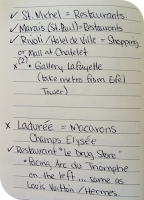 ✓ St. Michel = Restaurants.
✓ Marais (St. Paul) = Restaurants
✓ Rivoli / Hotel de Ville = Shopping
or Mall at Chatelet
x (2) • Gallery Lafayette
(take metro from Eifel
Tower)
x Ladurée = Macarons
Champs Elysée
✓ Restaurant "Le Drug Store"
* Facing Arc du Triomphe
on the left ... same as
Louis Vuitton / Hermes